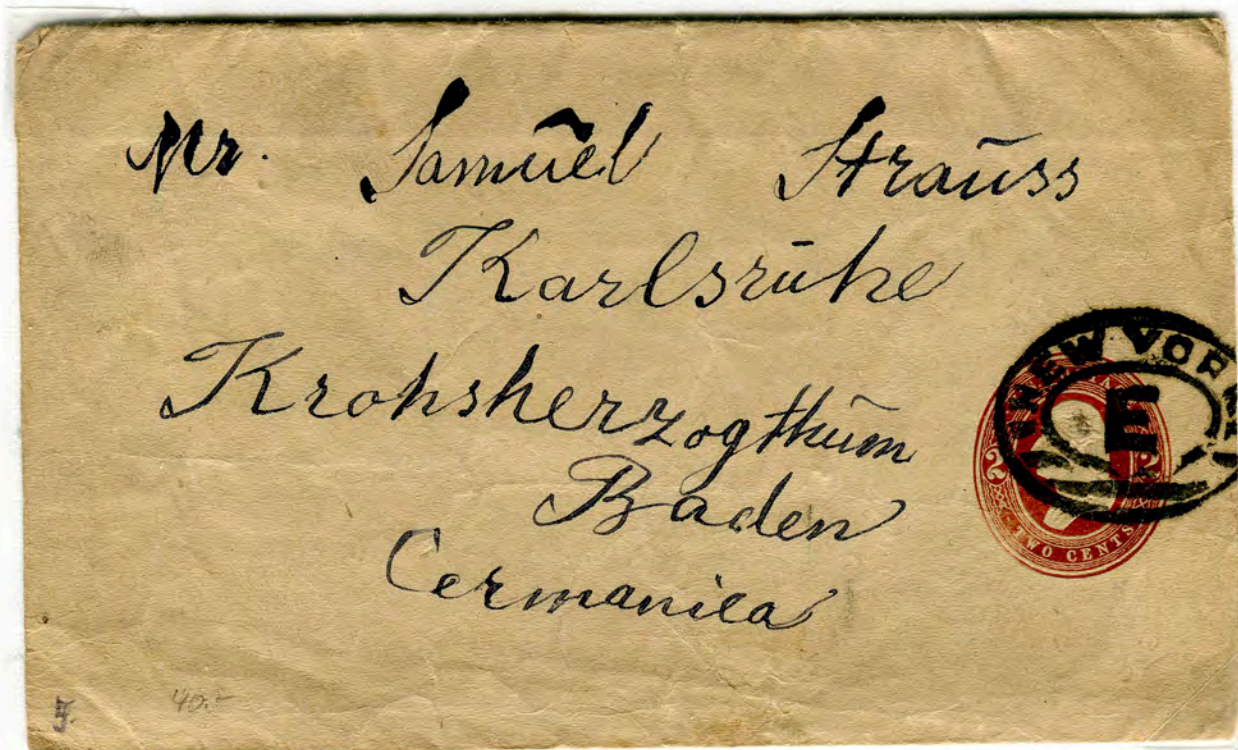 Mr. Samuel Strauss
Karlsruhe
Krohsherzogthum
Baden
Cermanica
NEW YORK
E
2 2
TWO CENTS
40.-